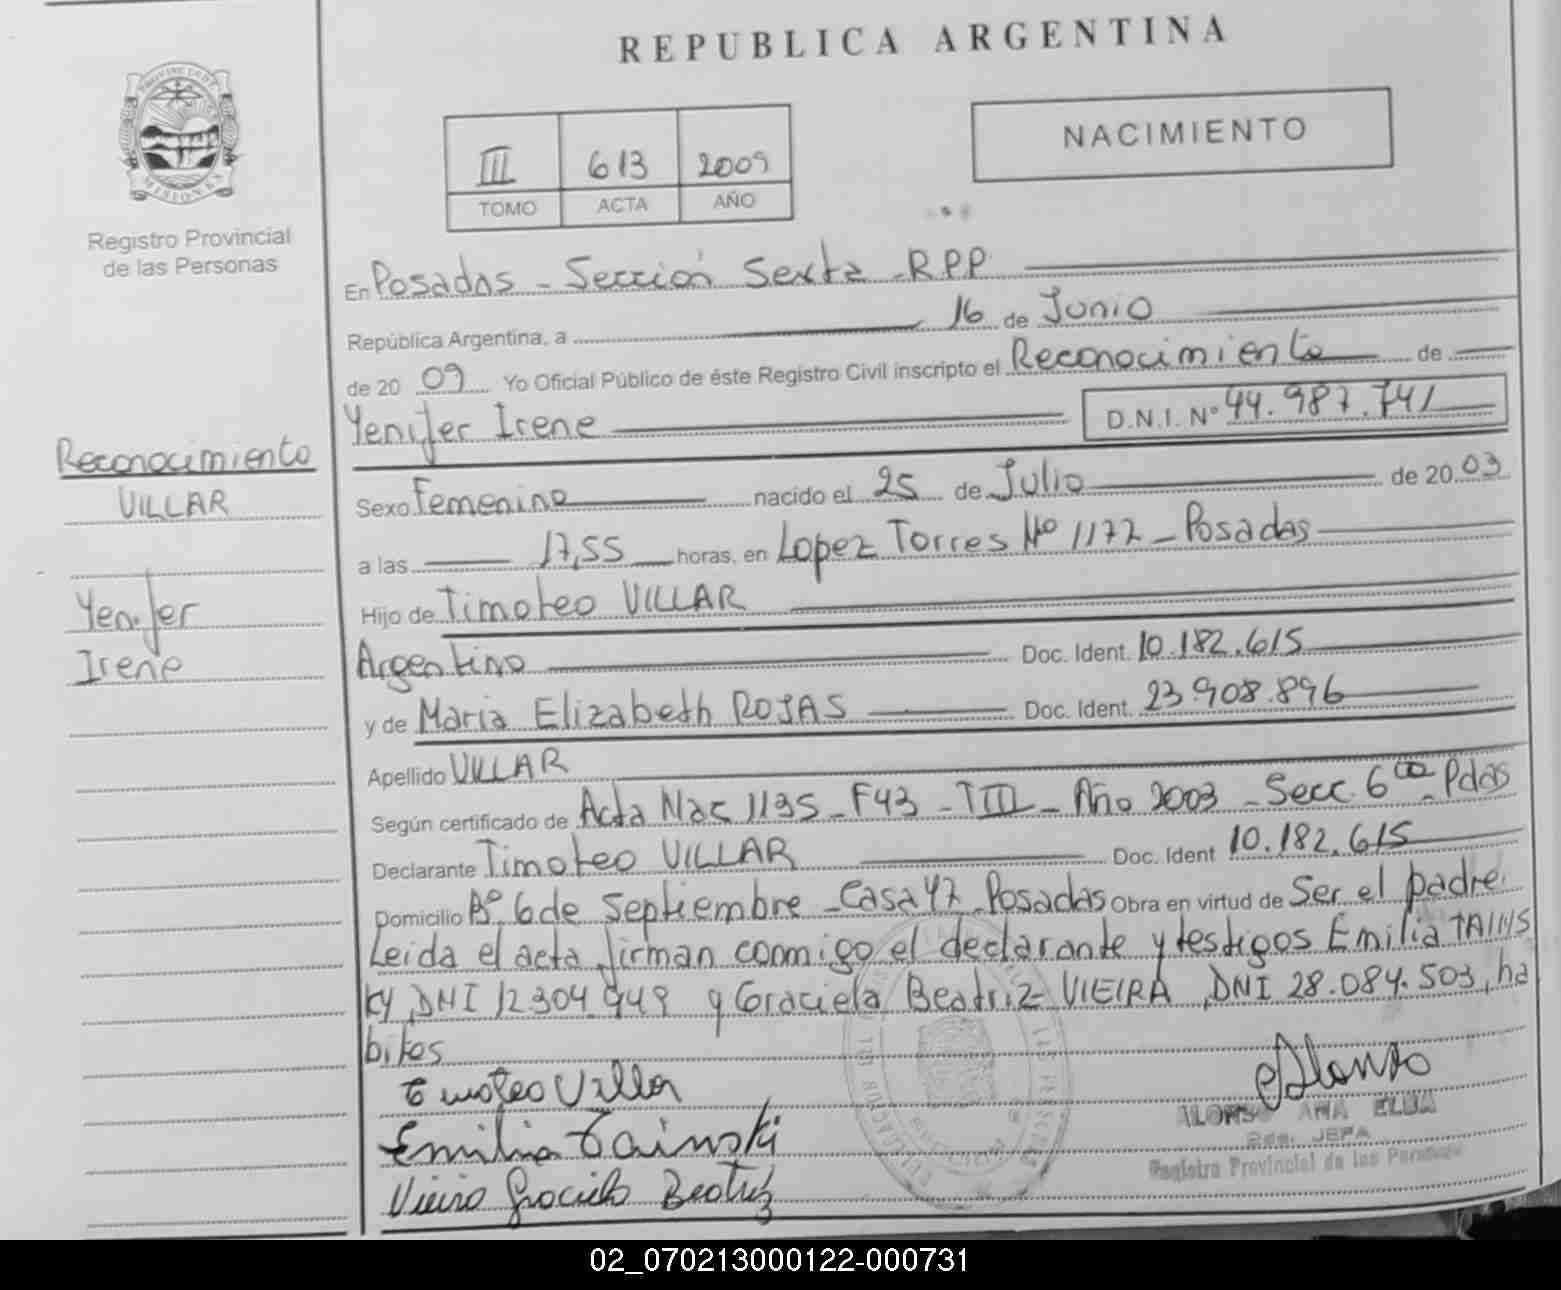 REPUBLICA ARGENTINA
PROVINCIA DE
MISIONES
Registro Provincial
de las Personas
III 613 2009
TOMO ACTA AÑO
NACIMIENTO
En Posadas - Sección Sexta - RPP
República Argentina, a 16 de Junio
de 20 09 Yo Oficial Público de éste Registro Civil inscripto el Reconocimiento de
Yenifer Irene D.N.I. Nº 44.987.741
Reconocimiento
VILLAR
Yenifer
Irene
Sexo Femenino nacido el 25 de Julio de 20 03
a las 17,55 horas, en Lopez Torres Nº 1172 - Posadas
Hijo de Timoteo VILLAR
Argentino Doc. Ident. 10.182.615
y de Maria Elizabeth ROJAS Doc. Ident. 23.908.896
Apellido VILLAR
Según certificado de Acta Nac 1135 - F43 - TIII - Año 2003 - Secc. 6ta - Pdas
Declarante Timoteo VILLAR Doc. Ident 10.182.615
Domicilio Bº 6 de Septiembre - Casa 47 - Posadas Obra en virtud de Ser el padre.
Leida el acta firman conmigo el declarante y testigos Emilia TAINS
KY, DNI 12304.949 y Graciela Beatriz VIEIRA, DNI 28.084.503, ha
biles
Timoteo Villar
Emilia Tainski
Vieira Graciela Beatriz
Alonso
ALONSO ANA ELBA
2da. JEFA
Registro Provincial de las Personas
02_070213000122-000731